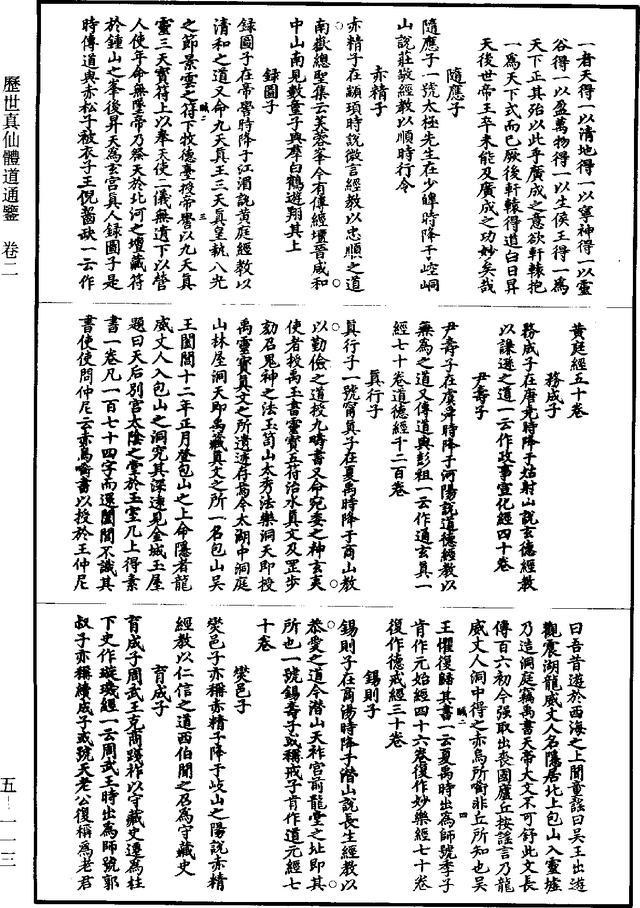 歷世真仙體道通鑒 卷二
一者天得一以清地得一以寧神得一以靈
谷得一以盈萬物得一以生侯王得一為
天下正其殆以此乎廣成之意欲軒轅抱
一為天下式而已厥後軒轅得道白日昇
天後世帝王卒未能及廣成之功妙矣哉
隨應子
隨應子一號太極先生在少皥時降于崆峒
山說莊敬經教以順時行令
赤精子
赤精子在顓頊時說微言經教以忠順之道
南嶽總聖集云芙蓉峯今有傳經壇晉咸和
中山南見數童子與摩白鶴遊翔其上
錄圖子
錄圖子在帝嚳時降于江湄說黃庭經教以
清和之道又命九天真王三天真皇執八光
之節景雲之符下牧德臺授帝嚳以九天真
靈三天寶符上以奉天使二儀無遺下以營
人使年命無墜帝乃祭天於北河之壇藏符
於鍾山之峯後昇天為玄宮真人錄圖子是
時傳道與赤松子被衣子王倪齧缺一云作
黃庭經五十卷
務成子
務成子在唐堯時降于姑射山說玄德經教
以謙遜之道一云作政事宣化經四十卷
尹壽子
尹壽子在虞舜時降于河陽說道德經教以
無為之道又傳道與彭祖一云作通玄真一
經七十卷道德經千二百卷
真行子
真行子一號甯真子在夏禹時降于商山教
以勤儉之道授九疇書又命宛委之神玄夷
使者授禹玉書靈寶五符治水真文及罡步
劾召鬼神之法玉笥山太秀法樂洞天即授
禹靈寶真文之所遺迹存焉今太湖中洞庭
山林屋洞天即禹藏真文之所一名包山吳
王闔閭十二年正月登包山之上命隱者龍
威文人入包山之洞究其深遠見金城玉屋
題曰天后別宮太陰之堂於玉室几上得素
書一卷凡一百七十四字而還闔閭不識其
書使使問仲尼云赤烏啣書以授於王仲尼
曰吾昔遊於西海之上聞童謠曰吳王出遊
觀震湖龍威文人名隱居北上包山入靈墟
乃造洞庭竊禹書天帝大文不可舒此文長
傳百六初今强取出喪國廬丘按謠言乃龍
威丈人洞中得之赤烏所啣非丘所知也吳
王懼復歸其書一云夏禹時出為師號李子
胥作元始經四十六卷復作妙樂經七十卷
復作德戒經三十卷
錫則子
錫則子在商湯時降于潛山說長生經教以
恭愛之道今潛山天祚宮前龍堂之址即其
所也一號錫壽子或稱戒子胥作道元經七
十卷
爕邑子
爕邑子亦稱赤精子降于岐山之陽說赤精
經教以仁信之道西伯聞之召為守藏史
育成子
育成子周武王克商踐祚以守藏史遷為柱
下史作璇璣經一云周武王時出為師號郭
叔子亦稱續成子或號天老公復稱為老君
五—一一三